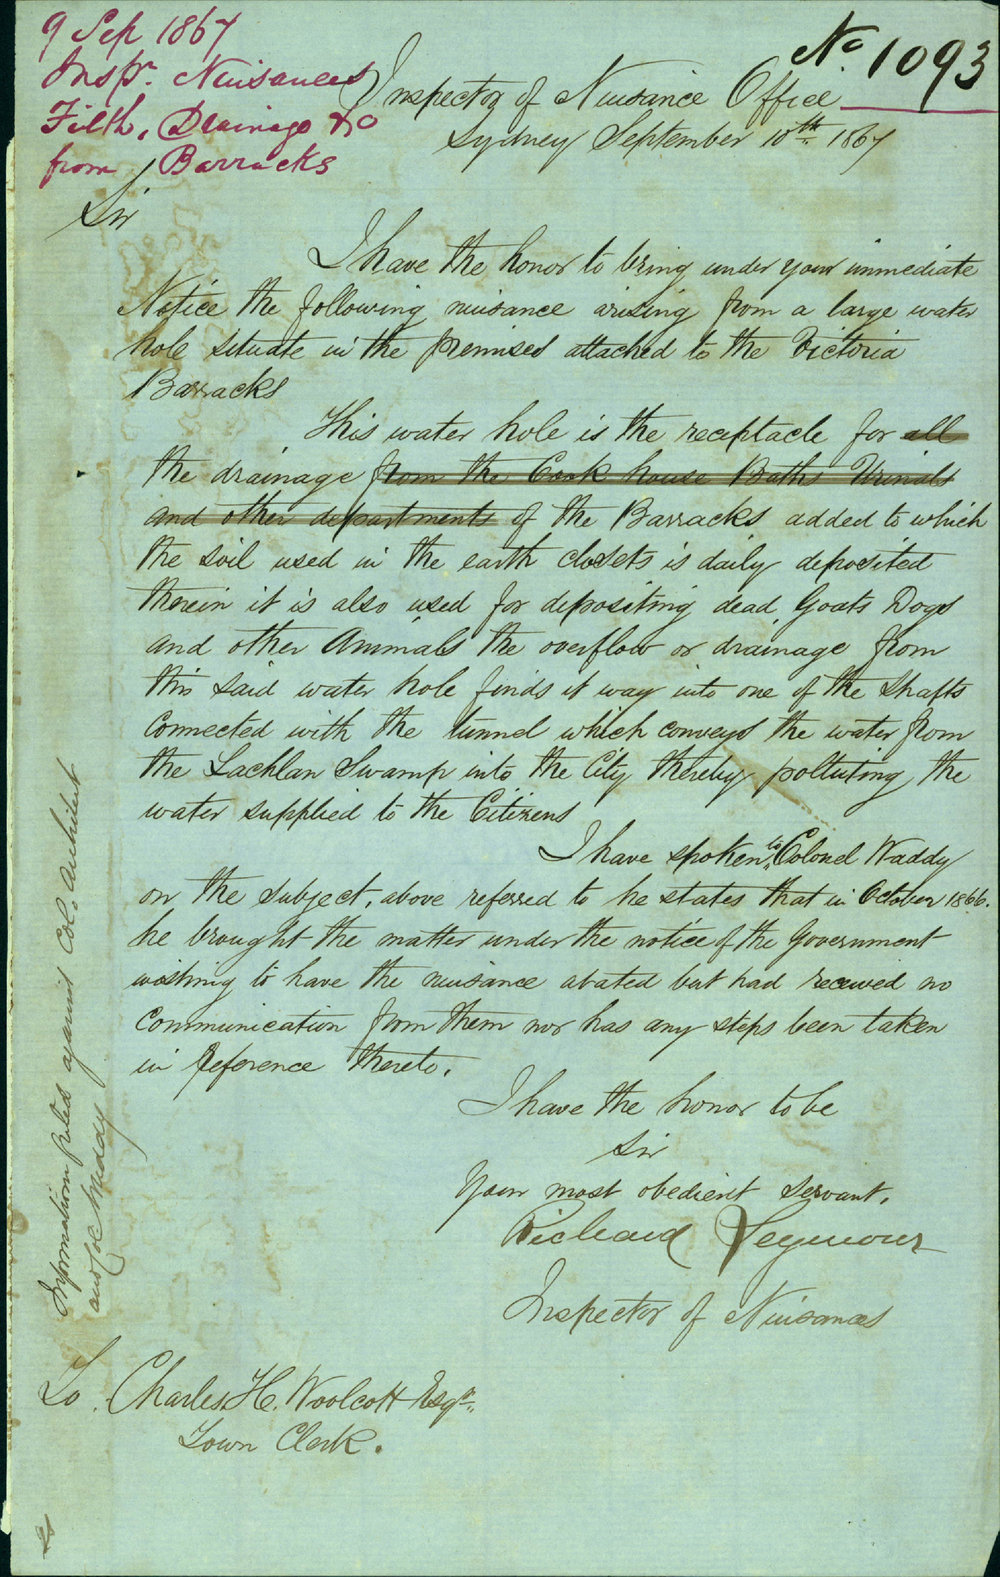 9 Sep 1867
Inspr. Nuisances
Filth, Drainage &c
from Barracks
No 1093
Inspector of Nuisance Office
Sydney September 10th 1867
Sir
I have the honor to bring under your immediate
Notice the following nuisance arising from a large water
hole situate in the premises attached to the Victoria
Barracks
This water hole is the receptacle for all
the drainage from the Cook house Baths Urinals
and other departments of the Barracks added to which
the soil used in the earth closets is daily deposited
therein it is also used for depositing dead Goats Dogs
and other Animals the overflow or drainage from
this said water hole finds it way into one of the shafts
connected with the tunnel which conveys the water from
the Lachlan Swamp into the City thereby polluting the
water supplied to the Citizens
I have spoken to Colonel Waddy
on the subject, above referred to he states that in October 1866.
he brought the matter under the notice of the Government
wishing to have the nuisance abated but had received no
communication from them nor has any steps been taken
in reference thereto.
I have the honor to be
Sir
Your most obedient servant,
Richard Seymour
Inspector of Nuisances
To Charles H. Woolcott Esqr.
Town Clerk.
Information filed against Col. Architect
and Col Waddy